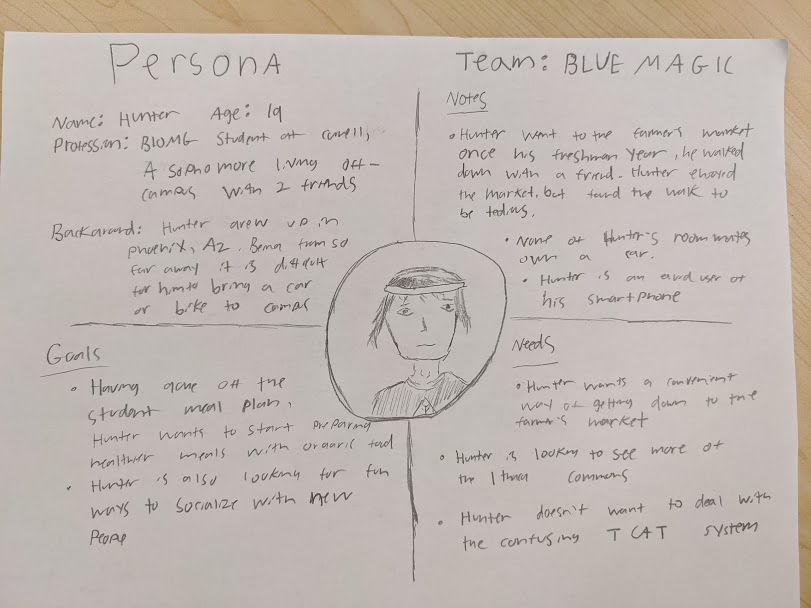 Persona
Name: Hunter Age: 19
Profession: BIOMG Student at Cornell,
A Sophomore living off-
campus with 2 friends
Background: Hunter grew up in
Phoenix, AZ. Being from so
far away it is difficult
for him to bring a car
or bike to campus
Team: BLUE MAGIC
Notes
• Hunter went to the farmer's market
once his freshman year, he walked
down with a friend. Hunter enjoyed
the market, but found the walk to
be tedius.
• None of Hunter's roommates
own a car.
• Hunter is an avid user of
his smartphone
Goals
• Having gone off the
student meal plan,
Hunter wants to start preparing
healthier meals with organic food
• Hunter is also looking for fun
ways to socialize with new
people
Needs
• Hunter wants a convenient
way of getting down to the
farmer's market
• Hunter is looking to see more of
the Ithaca commons
• Hunter doesn't want to deal with
the confusing TCAT system